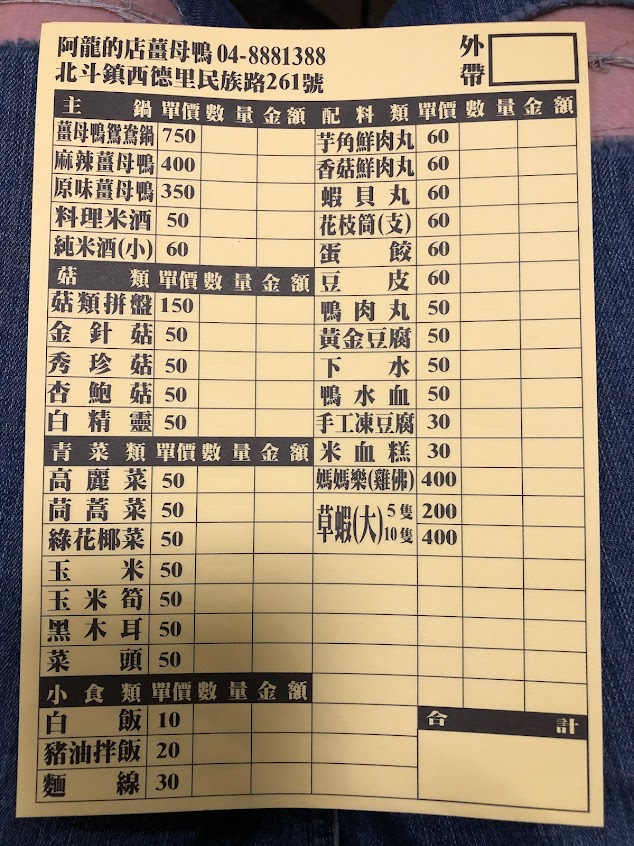 阿龍的店薑母鴨 04-8881388
北斗鎮西德里民族路261號
外帶
主鍋 單價 數量 金額
薑母鴨鴛鴦鍋 750
麻辣薑母鴨 400
原味薑母鴨 350
料理米酒 50
純米酒(小) 60
菇類 單價 數量 金額
菇類拼盤 150
金針菇 50
秀珍菇 50
杏鮑菇 50
白精靈 50
青菜類 單價 數量 金額
高麗菜 50
茼蒿菜 50
綠花椰菜 50
玉米 50
玉米筍 50
黑木耳 50
菜頭 50
小食類 單價 數量 金額
白飯 10
豬油拌飯 20
麵線 30
配料類 單價 數量 金額
芋角鮮肉丸 60
香菇鮮肉丸 60
蝦貝丸 60
花枝筒(支) 60
蛋餃 60
豆皮 60
鴨肉丸 50
黃金豆腐 50
下水 50
鴨水血 50
手工凍豆腐 30
米血糕 30
媽媽樂(雞佛) 400
草蝦(大) 5隻 200
10隻 400
合計